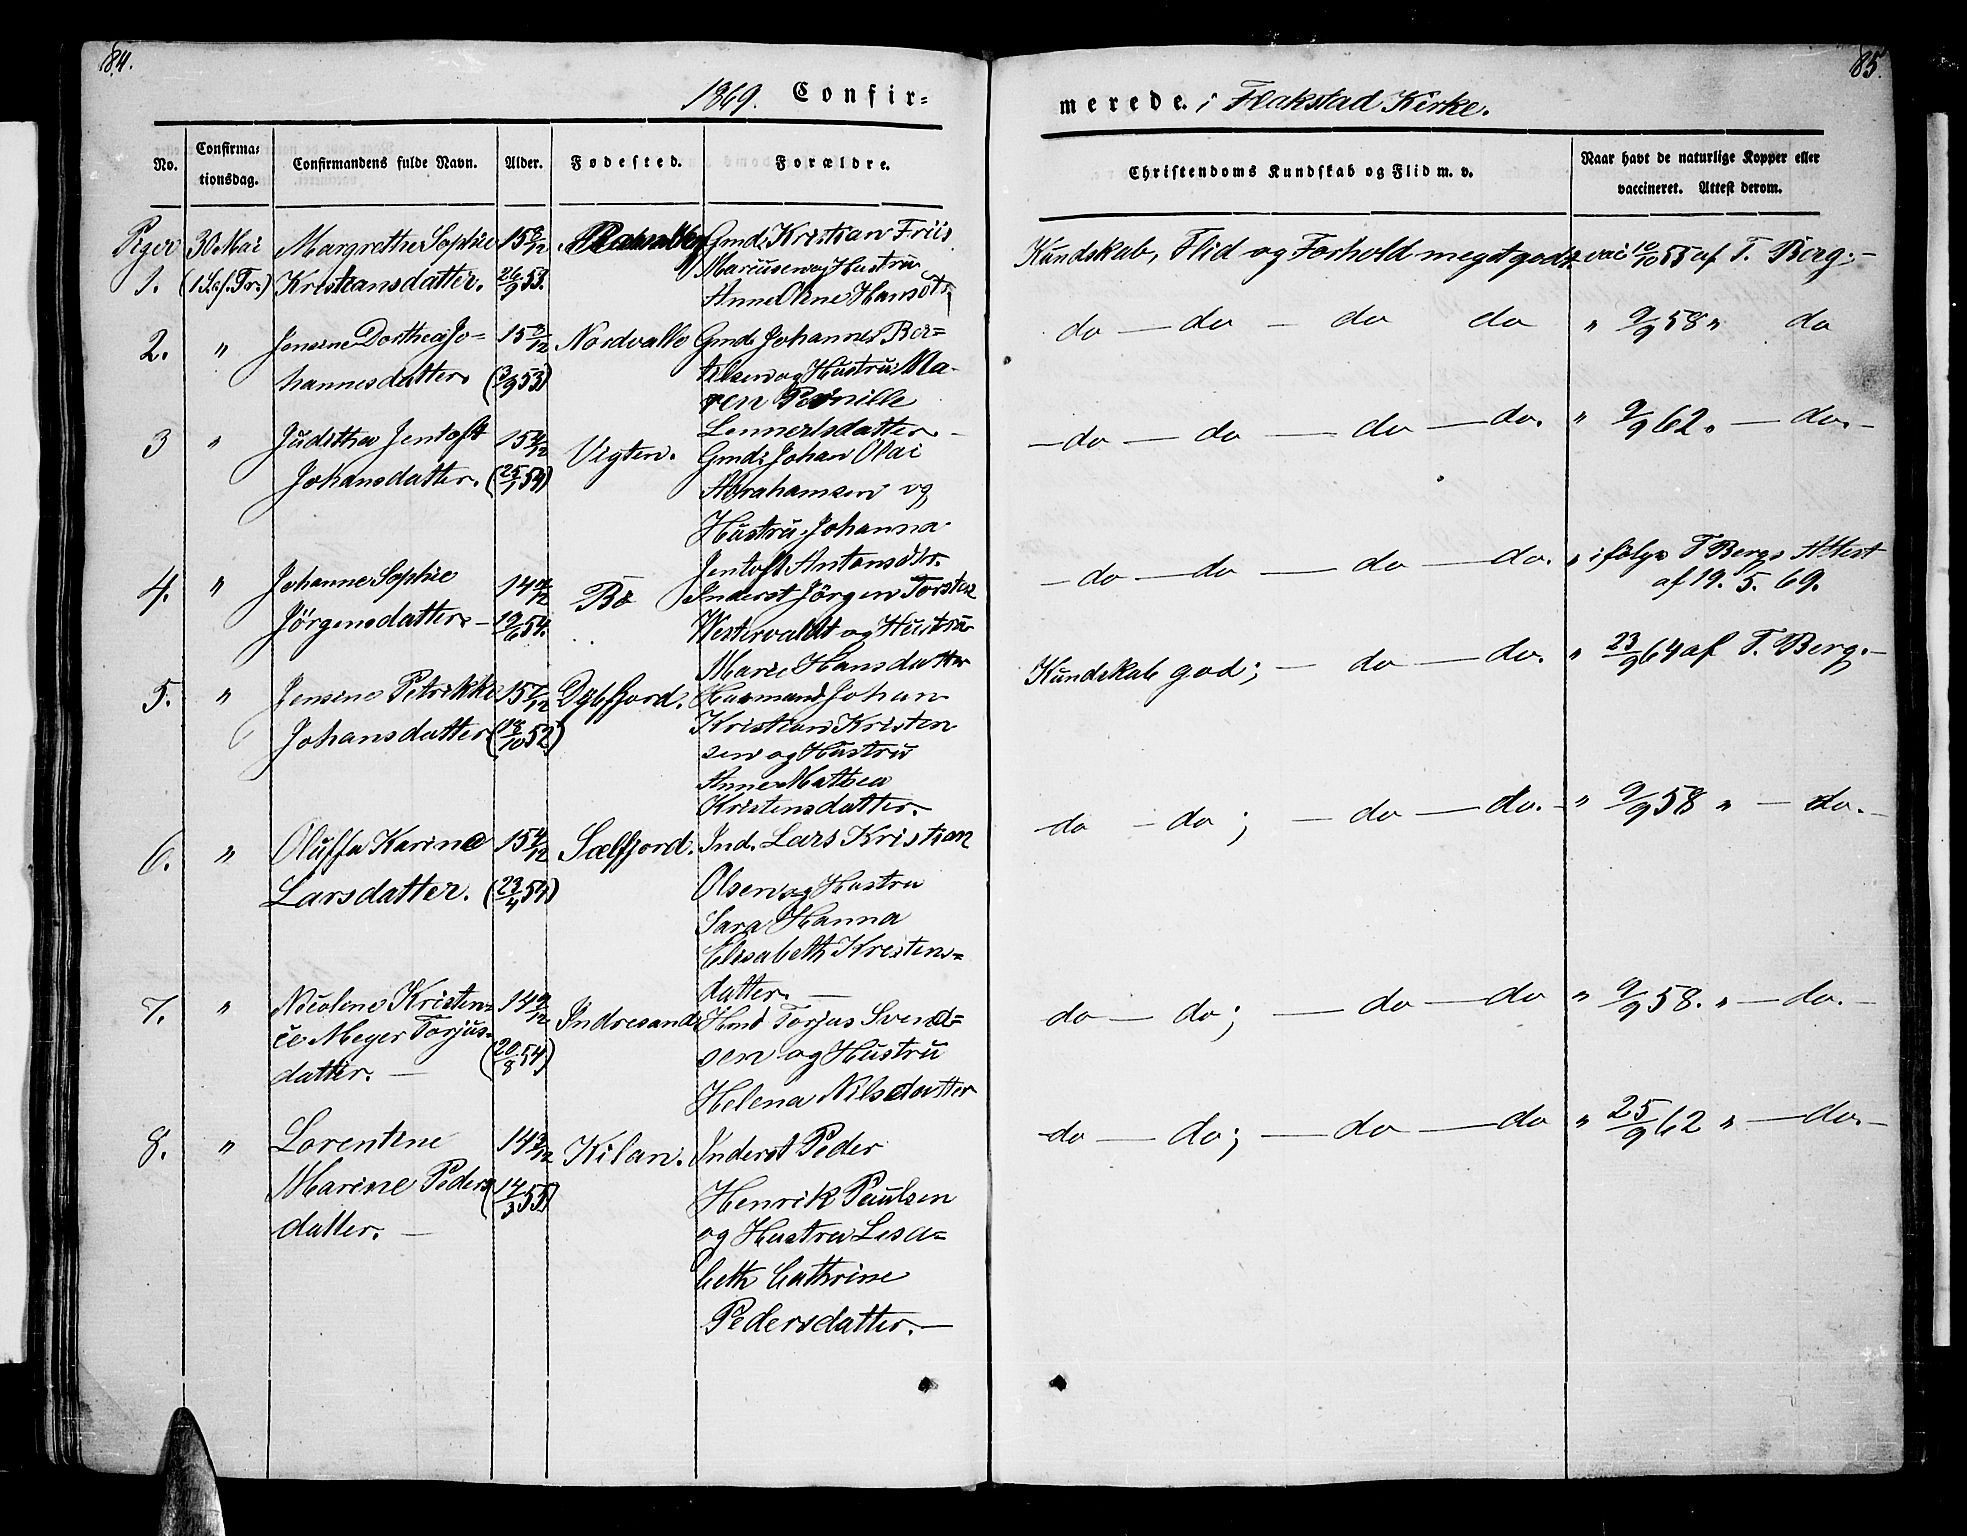 84.
85.
1869. Confir=
merede. i Flakstad Kirke.
No.
Confirma=
tionsdag.
Confirmandens fulde Navn.
Alder.
Fødested.
Forældre.
Christendoms Kundskab og Flid m. v.
Naar havt de naturlige Kopper eller
vaccineret. Attest derom.
Piger 30 Mai Margrethe Sophie 15 8/12 Gmd. Kristian Friis
1. (1 S. ef. Tr.) Kristiansdatter. 26/9 53. Mariusen og Hustru
Anne Oline Hansdtr.
Kundskab, Flid og Forhold meget godt. vac 10/10 55 af T. Berg. —
2. " Jensine Dorthea Jo- 15 8/12 Nordvalle Gmd. Johannes Ber=
hannesdatter. (3/9 53) telsen og Hustru Ma-
ren Pernille
Lennertsdatter. —
do — do — do do " 9/9 58 " do
3 " Juditha Jentoft 15 4/12 Vigten. Gmd. Johan Olai
Johansdatter. (25/1 54) Abrahamsen og
Hustru Johanna
Jentoft Antonsdtr.
— do — do — do — do. " 9/9 62. — do. —
4. " Johanne Sophie 14 11/12 Bø Inderst Jörgen Torsten
Jörgensdatter. — 19/6 54. Westervaldt og Hustru
Marie Hansdatter
— do — do — do — do. " ifölge T Bergs Attest
af 19. 5. 69.
5. " Jensine Petrikke 15 7/12 Dybfjord. Huusmand Johan
Johansdatter (18/10 52) Kristian Kristen
sen og Hustru
Anne Mathea
Kristensdatter. —
Kundskab god; — do — do. " 23/9 64 af T. Berg. —
6. " Oluffa Karine 15 4/12 Sælfjord. Ind. Lars Kristian
Larsdatter. (23/4 54) Olsen og Hustru
Sara Hanna
Elisabeth Kristens=
datter. —
do — do; — do — do. — " 9/9 58 " — do. —
7. " Nicoline Kristen= 14 9/12 Indresand Hmd Torjus Svend=
ce Meyer Torjus- (20/8 54) sen og Hustru
datter. — Helena Nilsdatter
do — do; — do — do " 9/9 58. " — do. —
8. " Lorentine 14 3/12 Kilan. Inderst Peder
Marine Peders (14/3 55) Henrik Paulsen
datter. — og Hustru Lisa=
beth Cathrine
Pedersdatter. —
do — do; — do — do " 25/9 62 " — do. —